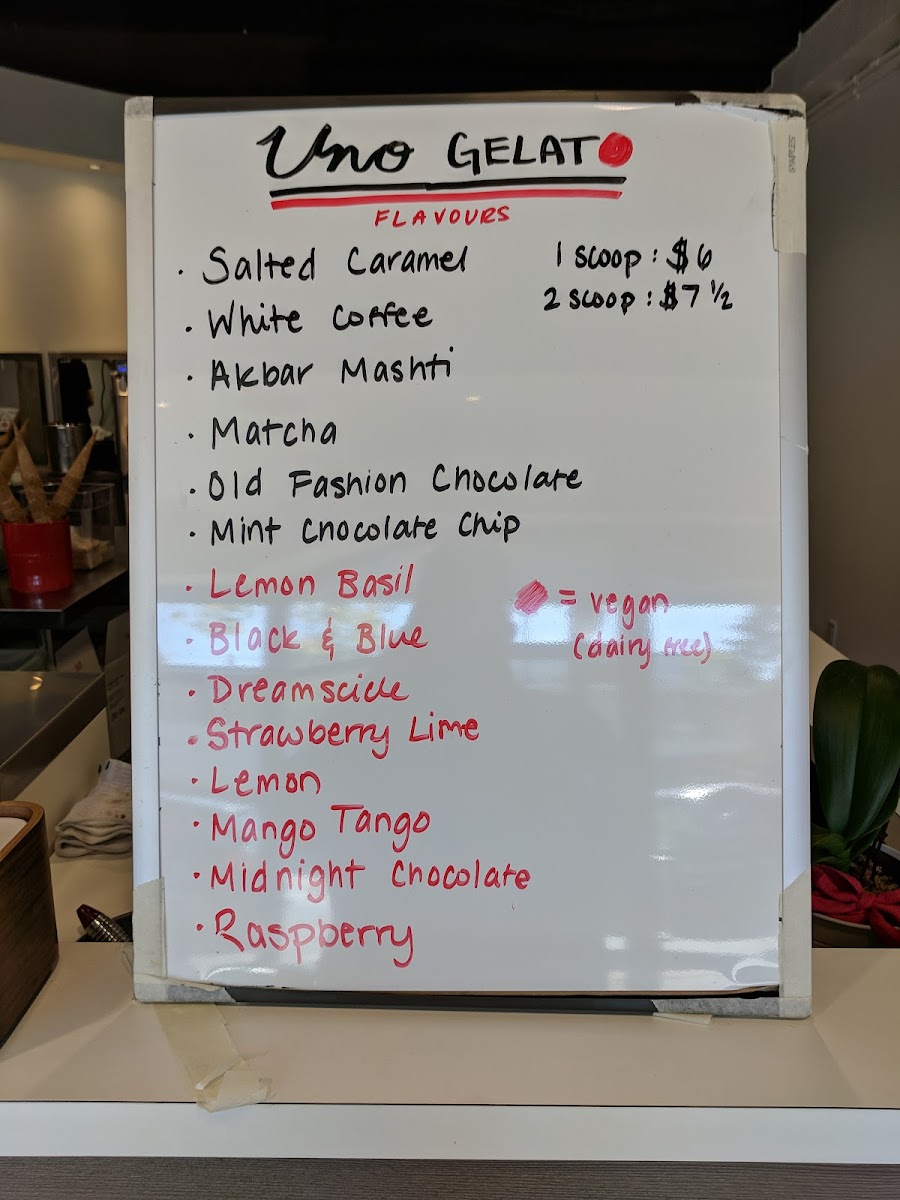 Uno GELATO
FLAVOURS
· Salted Caramel
1 scoop : $6
· White Coffee
2 scoop : $7 ½
· Akbar Mashti
· Matcha
· Old Fashion Chocolate
· Mint Chocolate Chip
· Lemon Basil
= vegan
(dairy free)
· Black & Blue
· Dreamsicle
· Strawberry Lime
· Lemon
· Mango Tango
· Midnight Chocolate
· Raspberry
STAPLES